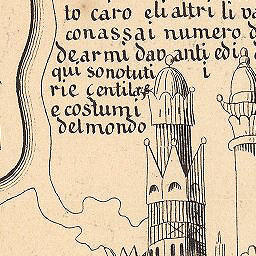 to caro eli altri li va
con assai numero d
de armi davanti edi
qui sono tuti i
rie gentilez
e costumi
del mondo